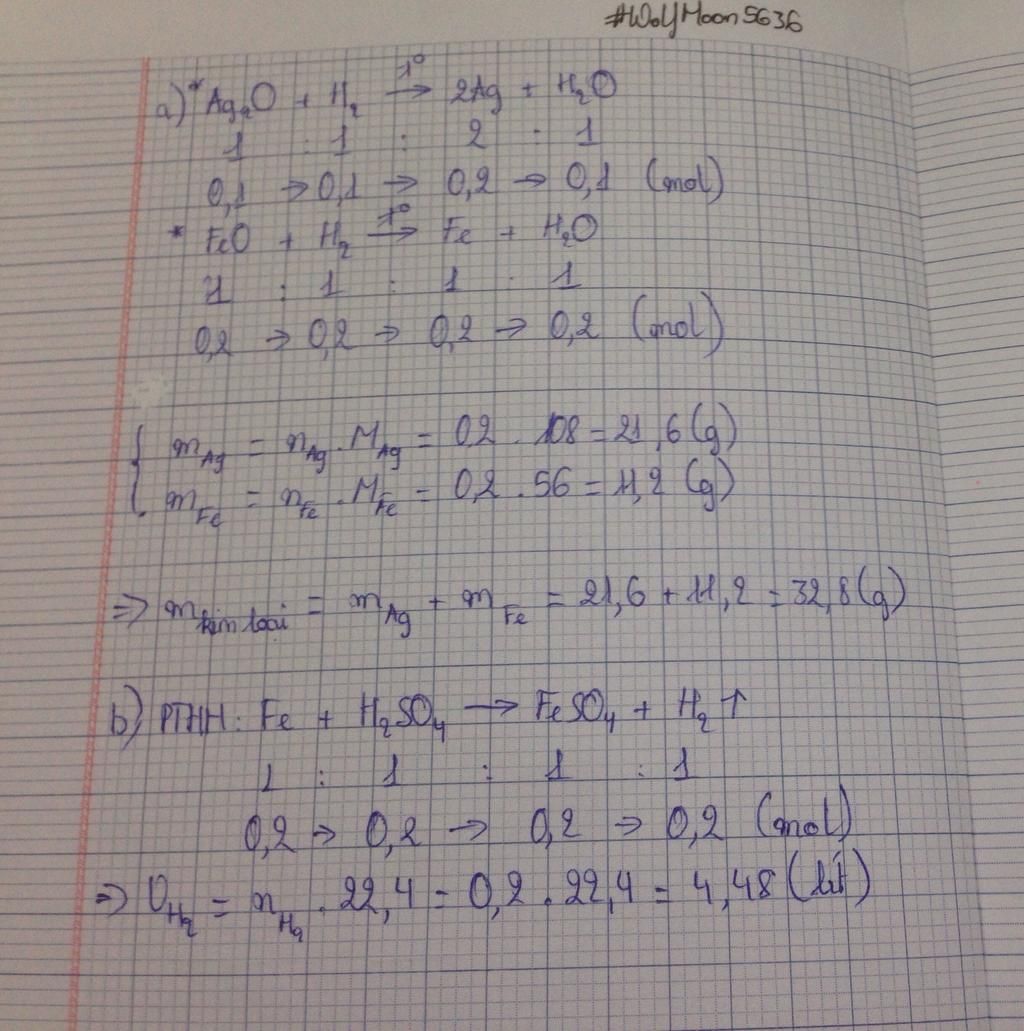 #WolfMoon5636
a) * Ag₂O + H₂ →(t°) 2Ag + H₂O
1 : 1 : 2 : 1
0,1 → 0,1 → 0,2 → 0,1 (mol)
* FeO + H₂ →(t°) Fe + H₂O
1 : 1 : 1 : 1
0,2 → 0,2 → 0,2 → 0,2 (mol)
{ m_Ag = n_Ag . M_Ag = 0,2 . 108 = 21,6 (g)
m_Fe = n_Fe . M_Fe = 0,2 . 56 = 11,2 (g)
=> m_kim loại = m_Ag + m_Fe = 21,6 + 11,2 = 32,8 (g)
b) PTHH: Fe + H₂SO₄ → FeSO₄ + H₂ ↑
1 : 1 : 1 : 1
0,2 → 0,2 → 0,2 → 0,2 (mol)
=> V_H₂ = n_H₂ . 22,4 = 0,2 . 22,4 = 4,48 (lít)